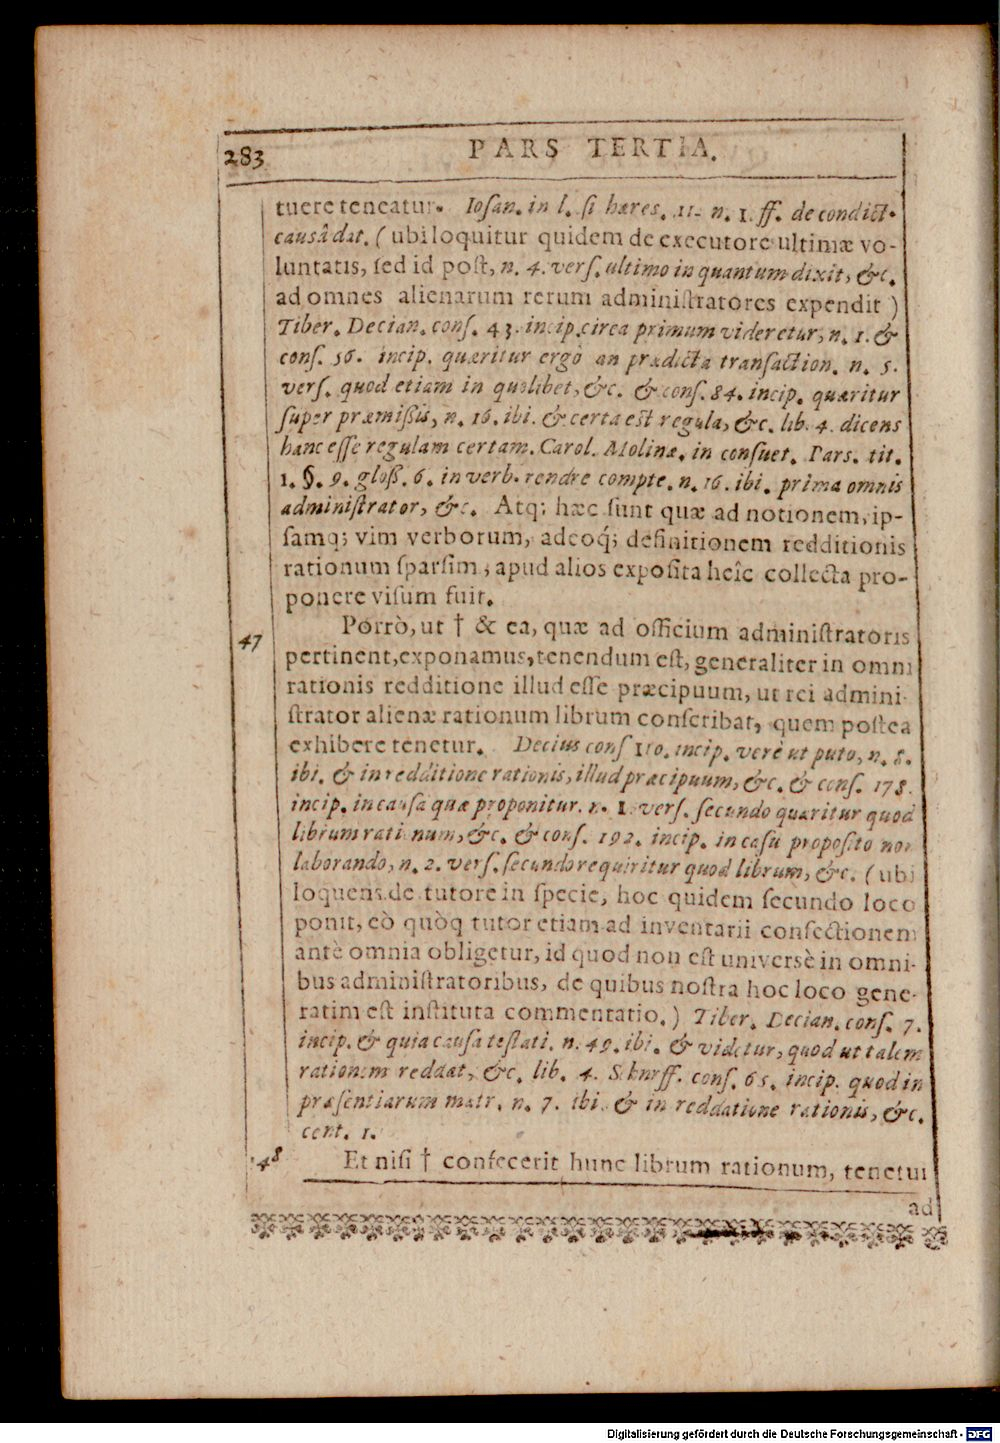 283 PARS TERTIA.
tuere teneatur. Iosan. in l. si hæres. 11. n. 1. ff. de condict.
causâ dat. (ubi loquitur quidem de executore ultimæ vo-
luntatis, sed id post, n. 4. vers. ultimo in quantum dixit, &c.
ad omnes alienarum rerum administratores expendit )
Tiber. Decian. cons. 43. incip. circa primum videretur, n. 1. &
cons. 56. incip. quæritur ergò an prædicta transaction. n. 5.
vers. quod etiam in quolibet, &c. & cons. 84. incip. quæritur
super præmißis, n. 16. ibi. & certa est regula, &c. lib. 4. dicens
hanc esse regulam certam. Carol. Molinæ. in consuet. Pars. tit.
1. §. 9. gloß. 6. in verb. rendre compte. n. 16. ibi. prima omnis
administrator, &c. Atq; hæc sunt quæ ad notionem, ip-
samq; vim verborum, adeoq́; definitionem redditionis
rationum sparsim, apud alios exposita heîc collecta pro-
ponere visum fuit.
47 Porrò, ut † & ea, quæ ad officium administratoris
pertinent, exponamus, tenendum est, generaliter in omni
rationis redditione illud esse præcipuum, ut rei admini-
strator alienæ rationum librum conscribat, quem postea
exhibere tenetur. Decius cons 110. incip. verè ut puto, n. 8.
ibi. & in redditione rationis, illud præcipuum, &c. & cons. 178.
incip. in causa quæ proponitur. n. 1. vers. secundo quæritur quod
librum rati num, &c. & cons. 192. incip. in casu proposito non
laborando, n. 2. vers. secundo requiritur quod librum, &c. (ubi
loquens de tutore in specie, hoc quidem secundo loco
ponit, eò quòq tutor etiam ad inventarii confectionem
antè omnia obligetur, id quod non est universè in omni-
bus administratoribus, de quibus nostra hoc loco gene-
ratim est instituta commentatio.) Tiber. Decian. cons. 7.
incip. & quia causa testati. n. 49. ibi. & videtur, quod ut talem
rationem reddat, &c. lib. 4. Schurff. cons. 65. incip. quod in
præsentiarum matr. n. 7. ibi & in reddatione rationis, &c.
cent. 1.
48 Et nisi † confecerit hunc librum rationum, tenetur
ad
Digitalisierung gefördert durch die Deutsche Forschungsgemeinschaft - DFG